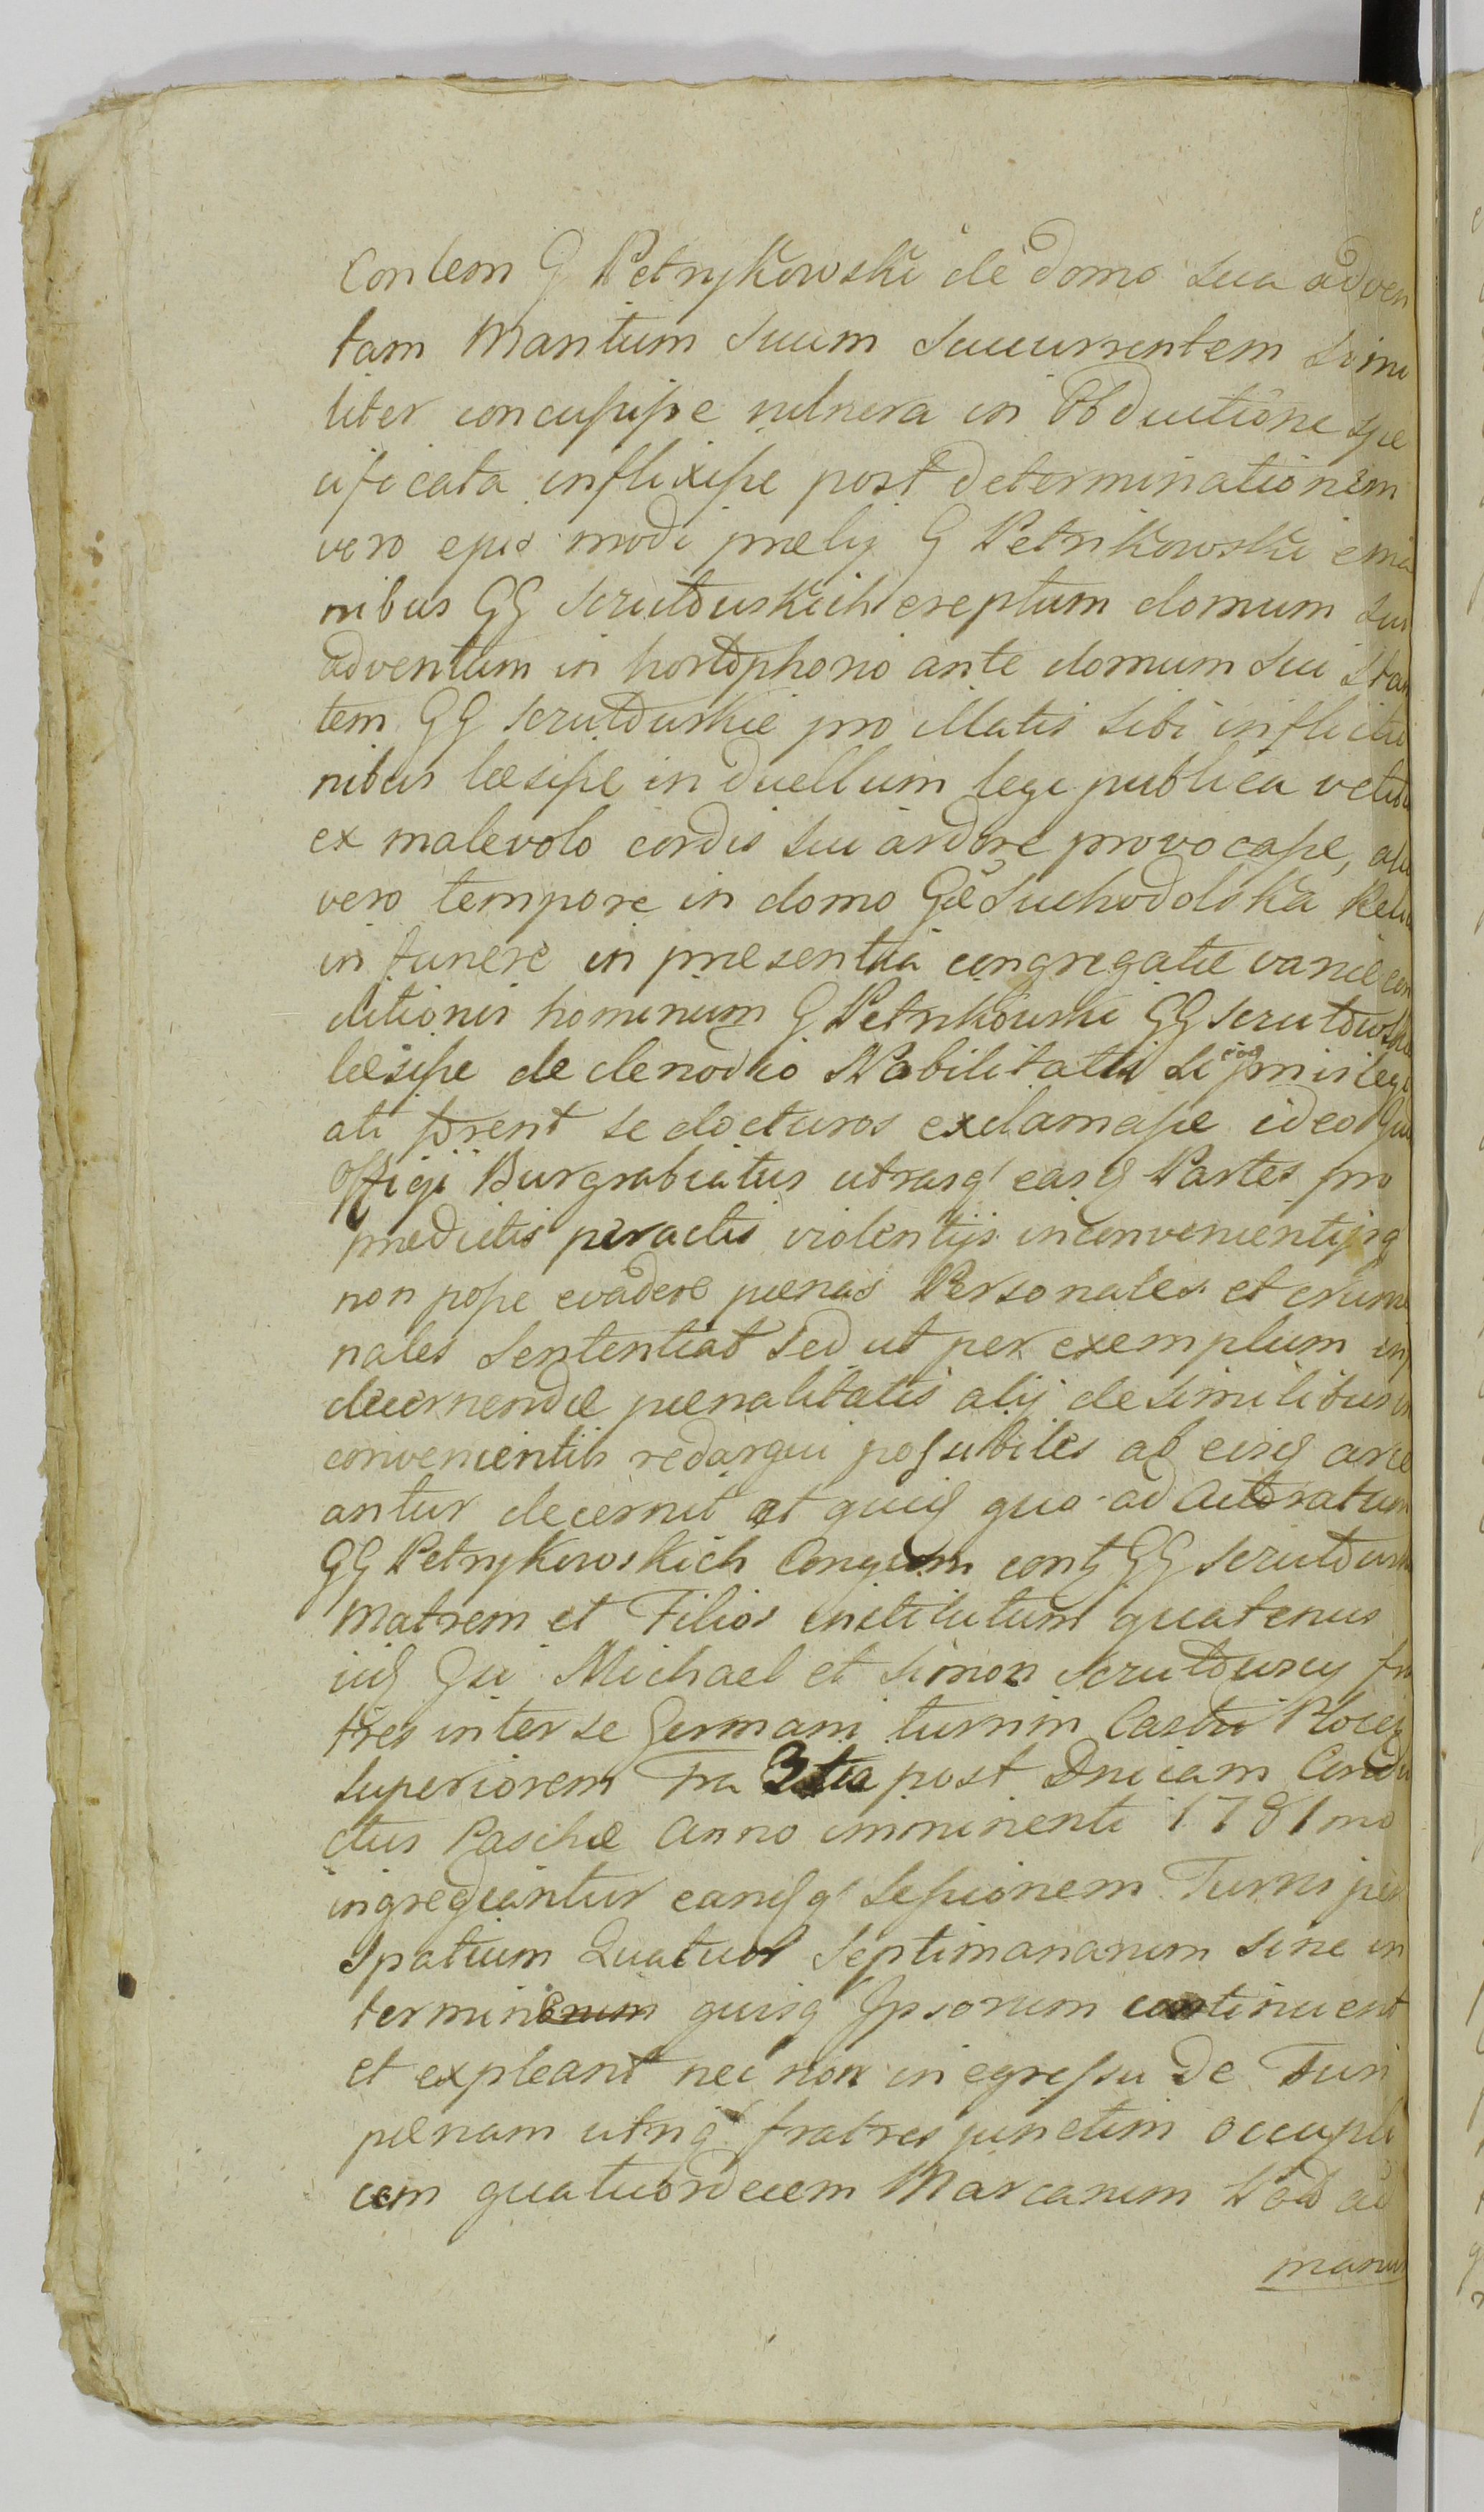 Contem G Petrykowski de domo sua adven
tam Maritum Suum Succurrentem Simi
liter concussisse vulnera in Obductione spe
cificata inflixisse post determinationem
vero ejus modi prælij G Petrikowski e ma
nibus GG Scrutduskich ereptum domum su
adventum in hortophorio ante domum sui Stan
tem GG Scrutduskie pro illatis sibi inflictio
nibus læsisse in duellum lege publica vetitu
ex malevolo cordis sui ardore provocasse, alio
vero tempore in domo Gæ Suchodolska
in funere in præsentia congregatæ variæ con
ditionis hominum G Petrikowski GG Scrutdwski
læsisse de clenodio Nobilitatis si ejus privilegi
ati forent se docturos exclamasse ideo
Officij Burgrabiatus utrasq easq Partes pro
prædictis peractis violentijs inconvenientijsq
non posse evadere pœnas Personales et crimi
nales Sententiat Sed ut per exemplum in
decernendæ pœnalitatis alij de similibus in
convenientiis redargui possibiles ab eisq arce
antur decernit et quo ad Actoratum
GG Petrykowskich Conjugum GG Scrutdusk
Matrem et Filios institutum quatenus
Michael et Simon Scrutduscy fra
tres inter se Germani turrim Castri Plocen
Superiorem Fra 3tia post Dnicam Condu
ctus Paschæ Anno imminenti 1781mo
ingrediantur eamqq Sessionem Turris per
Spatium Quatuor Septimanarum sine in
termin quisq Ipsorum continuent
et expleant nec non in egressu de Turi
pœnam utriq fratres junctim
cem quatuordecem Marcarum Pol ad
manus